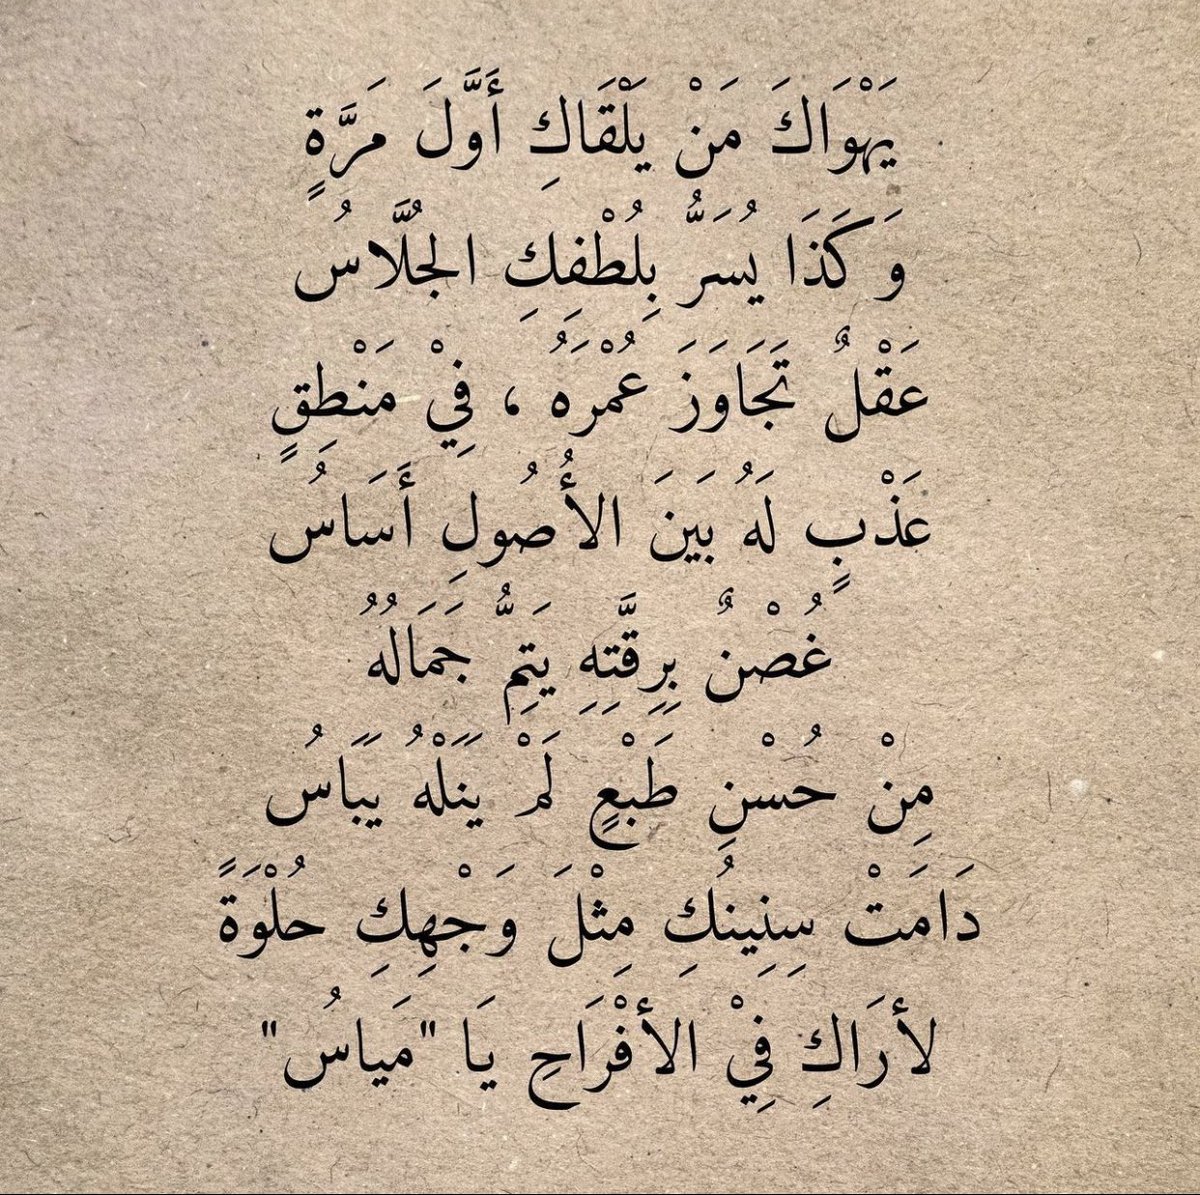 يَهْوَاكَ مَنْ يَلْقَاكِ أَوَّلَ مَرَّةٍ
وَكَذَا يُسَرُّ بِلُطْفِكِ الجُلَّاسُ
عَقْلٌ تَجَاوَزَ عُمْرَهُ ، فِيْ مَنْطِقٍ
عَذْبٍ لَهُ بَينَ الأُصُولِ أَسَاسُ
غُصْنٌ بِرِقَّتِهِ يَتِمُّ جَمَالُهُ
مِنْ حُسْنِ طَبْعٍ لَمْ يَنَلْهُ يَبَاسُ
دَامَتْ سِنِينُكِ مِثْلَ وَجْهِكِ حُلْوَةً
لأرَاكِ فِيْ الأفْرَاحِ يَا "مَياسُ"